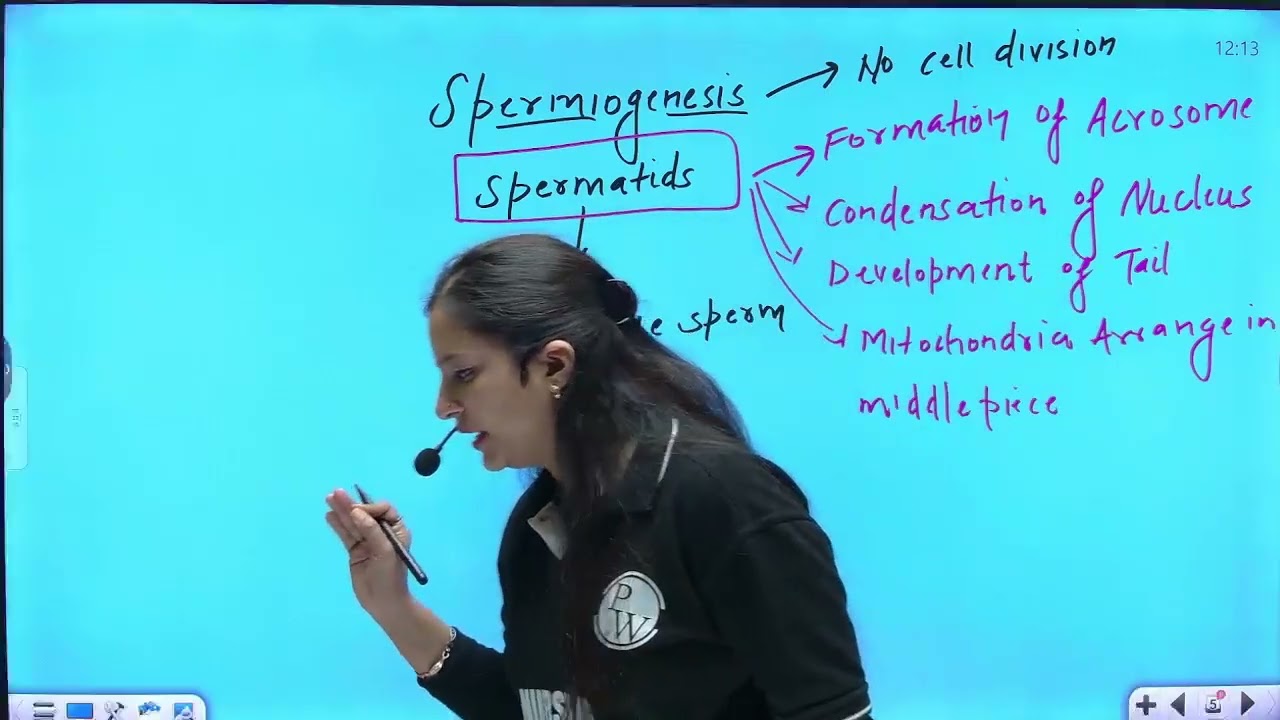 12:13
Spermiogenesis → No cell division
Spermatids
Formation of Acrosome
Condensation of Nucleus
Development of Tail
sperm
Mitochondria Arrange in
middle piece
PW
5